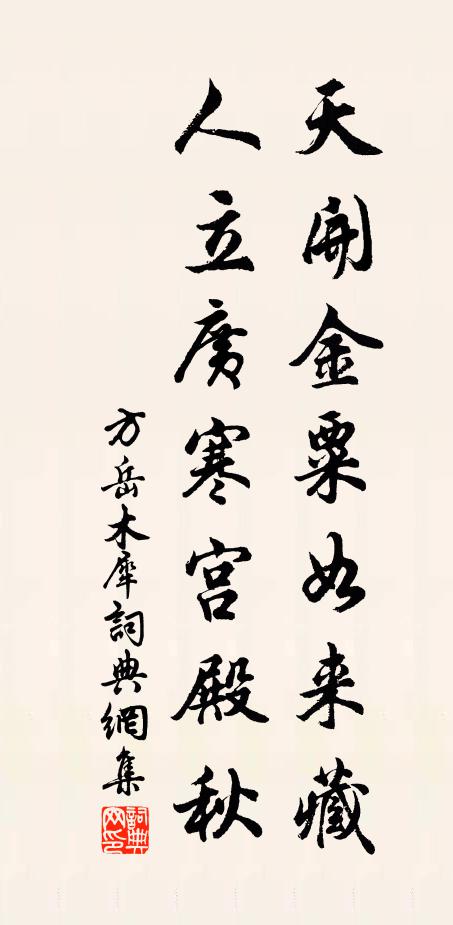 天開金粟如来藏
人立廣寒宮殿秋
方岳木犀詞典網集
詞典
网印